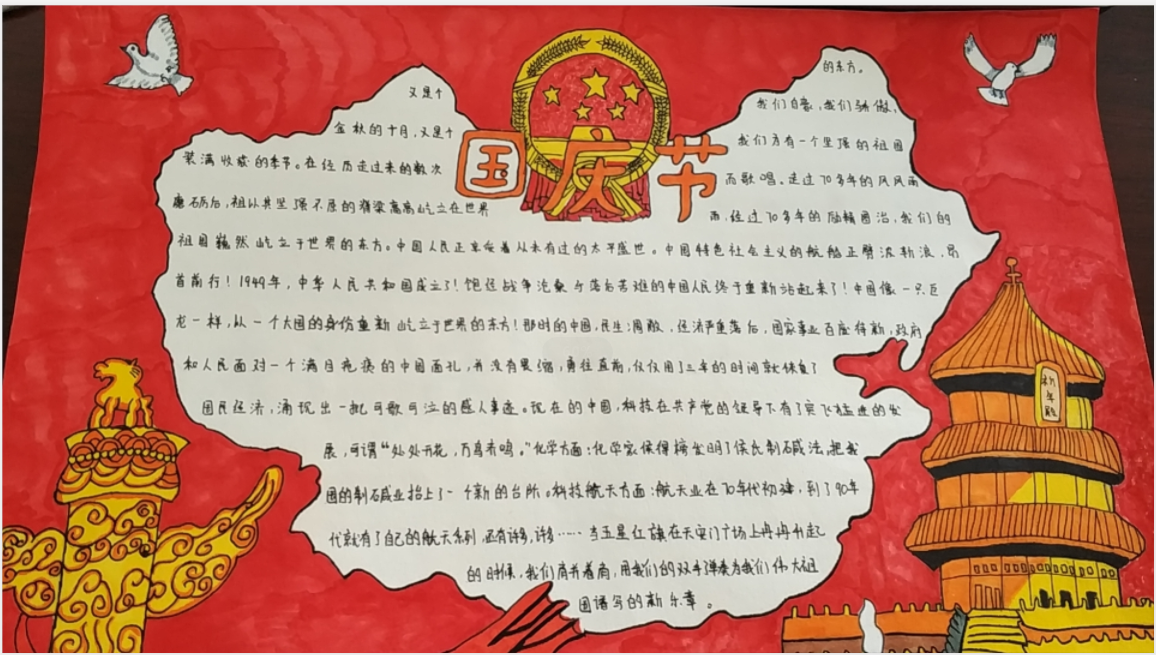 国庆节
又是个
金秋的十月,又是个
装满收获的季节。在经历走过来的数次
磨砺后,祖以其坚强不屈的脊梁高高屹立在世界
的东方。
我们自豪,我们骄傲,
我们为有一个坚强的祖国
而歌唱。走过70多年的风风雨
雨,经过70多年的励精图治,我们的
祖国巍然屹立于世界的东方。中国人民正享受着从未有过的太平盛世。中国特色社会主义的航船正劈波斩浪,昂
首前行!1949年,中华人民共和国成立了!饱经战争沧桑与落后苦难的中国人民终于重新站起来了!中国像一只巨
龙一样,从一个大国的身份重新屹立于世界的东方!那时的中国,民生凋敝、经济严重落后,国家事业百废待新,政府
和人民面对一个满目疮痍的中国面孔,并没有畏缩,勇往直前,仅仅用了三年的时间就恢复了
国民经济,涌现出一批可歌可泣的感人事迹。现在的中国,科技在共产党的领导下有了突飞猛进的发
展,可谓“处处开花,万鸟齐鸣。”化学方面:化学家侯得榜发明了侯氏制碱法,把我
国的制碱业抬上了一个新的台阶。科技航天方面:航天业在70年代初建,到了90年
代就有了自己的航天系列,还有许多,许多……当五星红旗在天安门广场上冉冉升起
的时候,我们肩并着肩,用我们的双手弹奏为我们伟大祖
国谱写的新乐章。
祈年殿